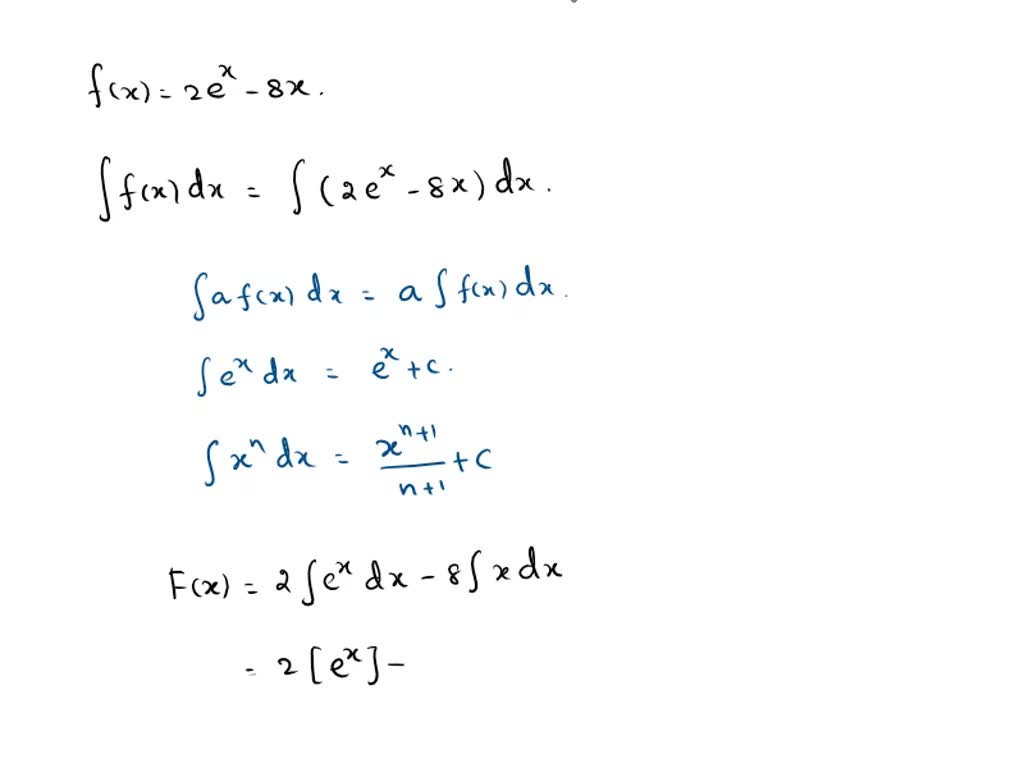 f(x) = 2e^x - 8x.
∫f(x) dx = ∫(2e^x - 8x) dx.
∫a f(x) dx = a ∫ f(x) dx.
∫e^x dx = e^x + c.
∫x^n dx = x^(n+1)/(n+1) + C
F(x) = 2∫e^x dx - 8∫x dx
= 2[e^x] -